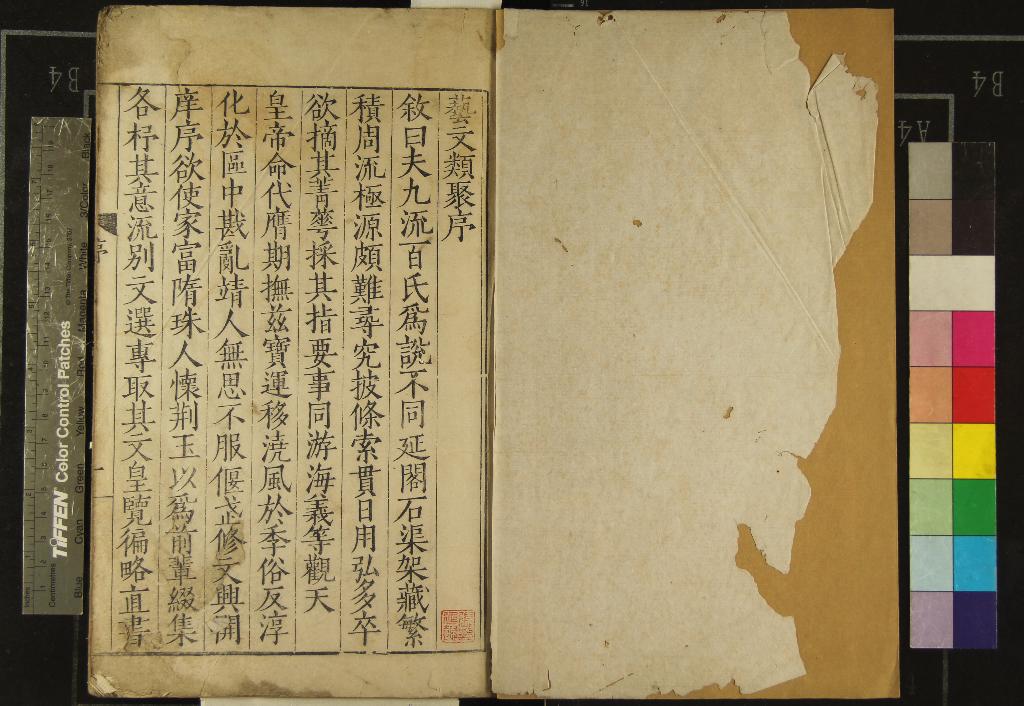 藝文類聚序
敘曰夫九流百氏爲說不同延閣石渠架藏繁
積周流極源頗難尋究披條索貫日用弘多卒
欲摘其菁華採其指要事同游海義等觀天
皇帝命代膺期撫茲寶運移澆風於季俗反淳
化於區中戡亂靖人無思不服偃武修文興開
庠序欲使家富隋珠人懷荆玉以爲前輩綴集
各杼其意流別文選專取其文皇覽徧略直書
序
B4
B4
A4
TIFFEN Color Control Patches
Inches
Centimetres
Blue
Cyan
Green
Yellow
Red
Magenta
White
3/Color
Black